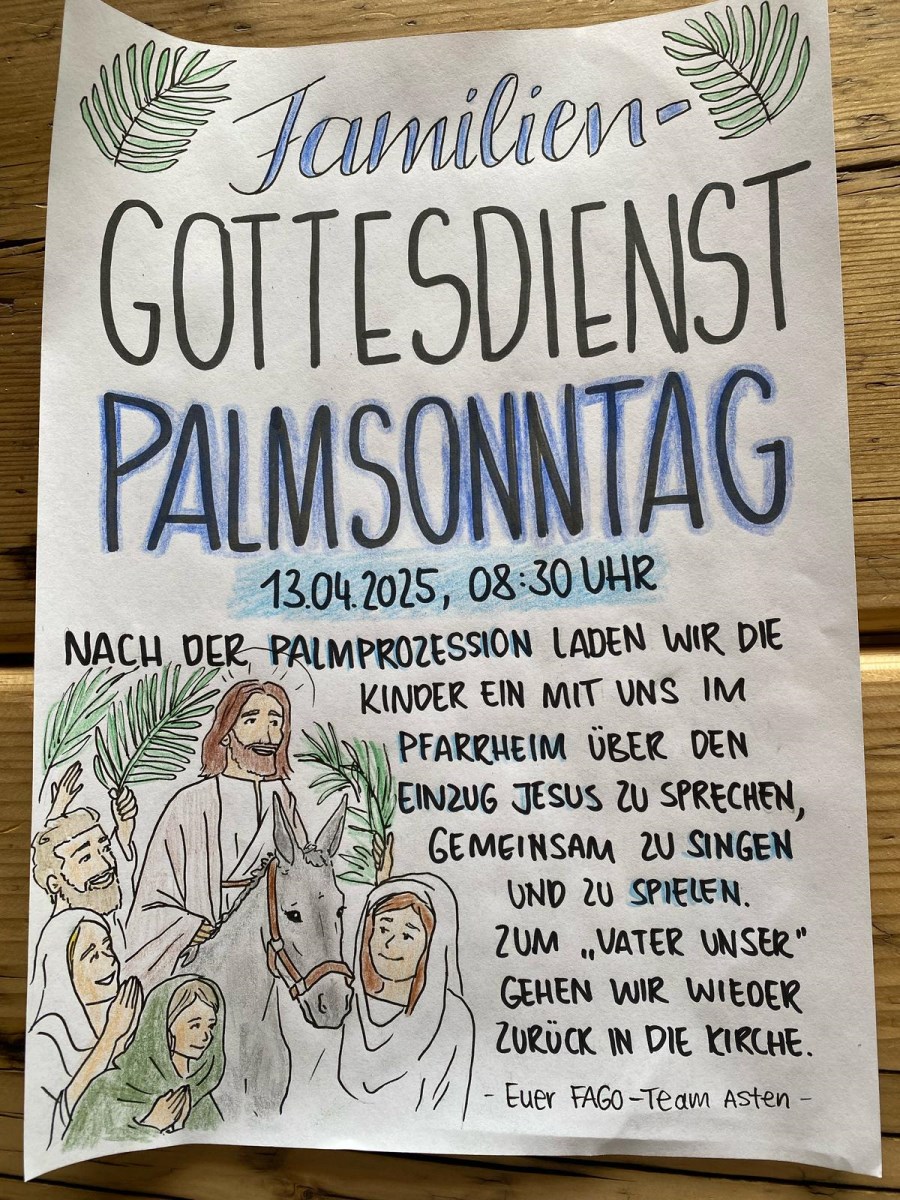 Familien-
GOTTESDIENST
PALMSONNTAG
13.04.2025, 08:30 UHR
NACH DER PALMPROZESSION LADEN WIR DIE
KINDER EIN MIT UNS IM
PFARRHEIM ÜBER DEN
EINZUG JESUS ZU SPRECHEN,
GEMEINSAM ZU SINGEN
UND ZU SPIELEN.
ZUM „VATER UNSER"
GEHEN WIR WIEDER
ZURÜCK IN DIE KIRCHE.
- Euer FAGO-Team Asten -